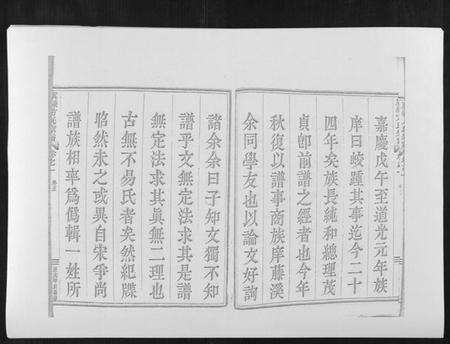 嘉慶戊午至道光元年族
庠曰蛟踵其事迄今二十
四年矣族長純和總理茂
貞郎前譜之經者也今年
秋復以譜事商族庠藤溪
余同學友也以論文好詢
諸余余曰子知文獨不知
譜乎文無定法求其是譜
無定法求其眞無二理也
古無不易氏者矣然紀牒
昭然未之或異自宋爭尚
譜族相率爲僞輯一姓所